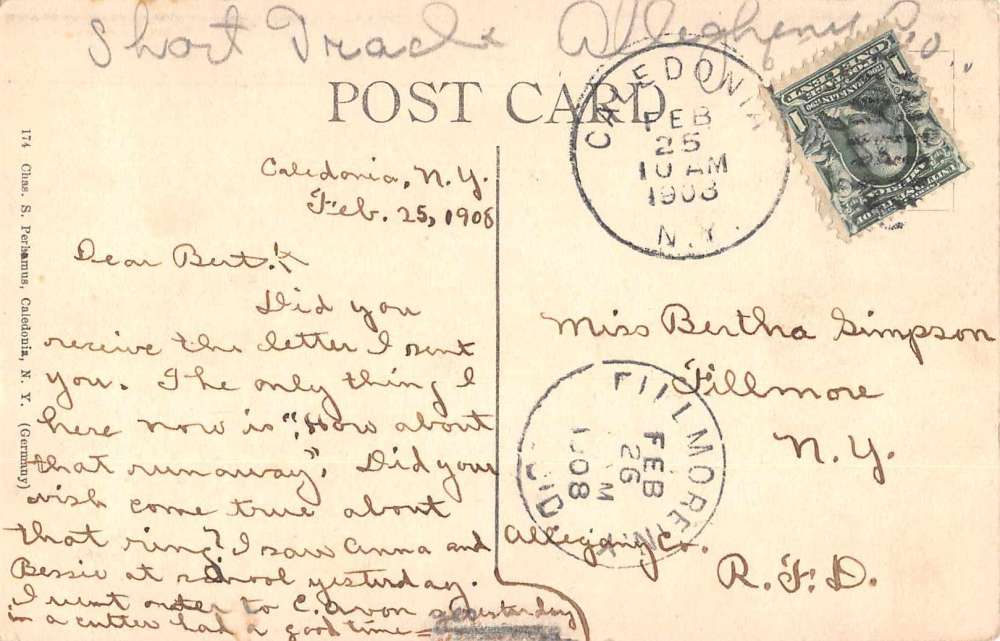 Short Tract Allegheny Co.
POST CARD
CALEDONIA
FEB
25
10 AM
1908
N.Y.
1 ONE CENT 1
174 Chas. S. Perhamus, Caledonia, N. Y. (Germany)
Caledonia, N.Y.
Feb. 25, 1908
Dear Bert:
Did you
receive the letter I sent
you. The only thing I
here now is "How about
that runaway". Did your
wish come true about
that ring? I saw Anna and
Bessie at school yesterday.
I went over to E. Avon yesterday
in a cutter had a good time
Miss Bertha Simpson
Fillmore
N.Y.
Allegany Co.
R.F.D.
FILLMORE N.Y.
FEB
26
M
1908